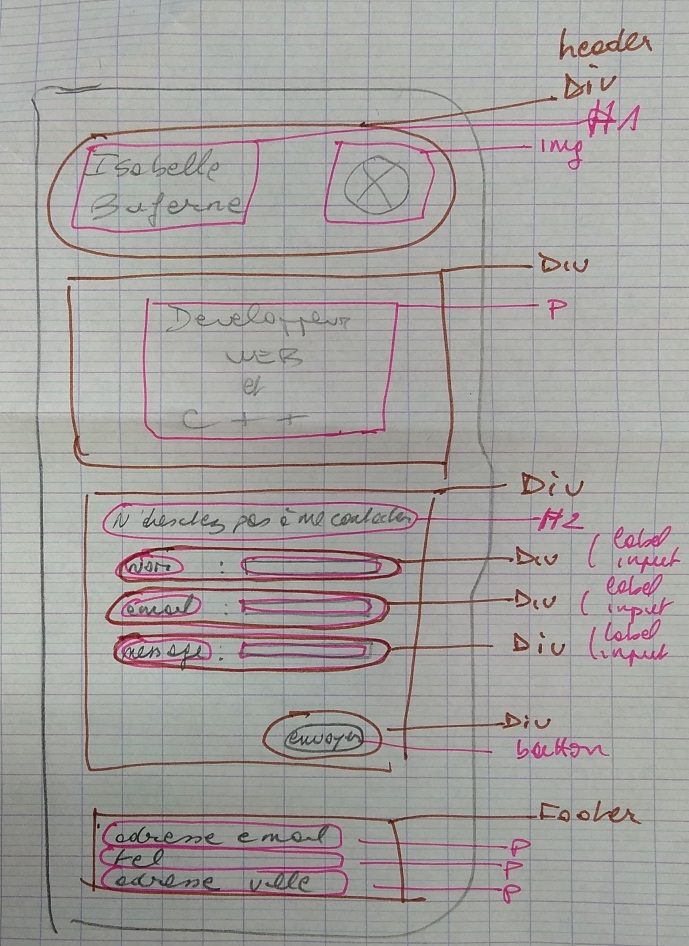 header
Div
H1
img
Isabelle
Buferne
Div
P
Developpeur
WEB
et
C++
Div
N'hesitez pas à me contacter
H2
Nom :
Div ( label
input
email :
Div ( label
input
message :
Div ( label
input
Div
envoyer
button
Footer
adresse email
P
tel
P
adresse ville
P